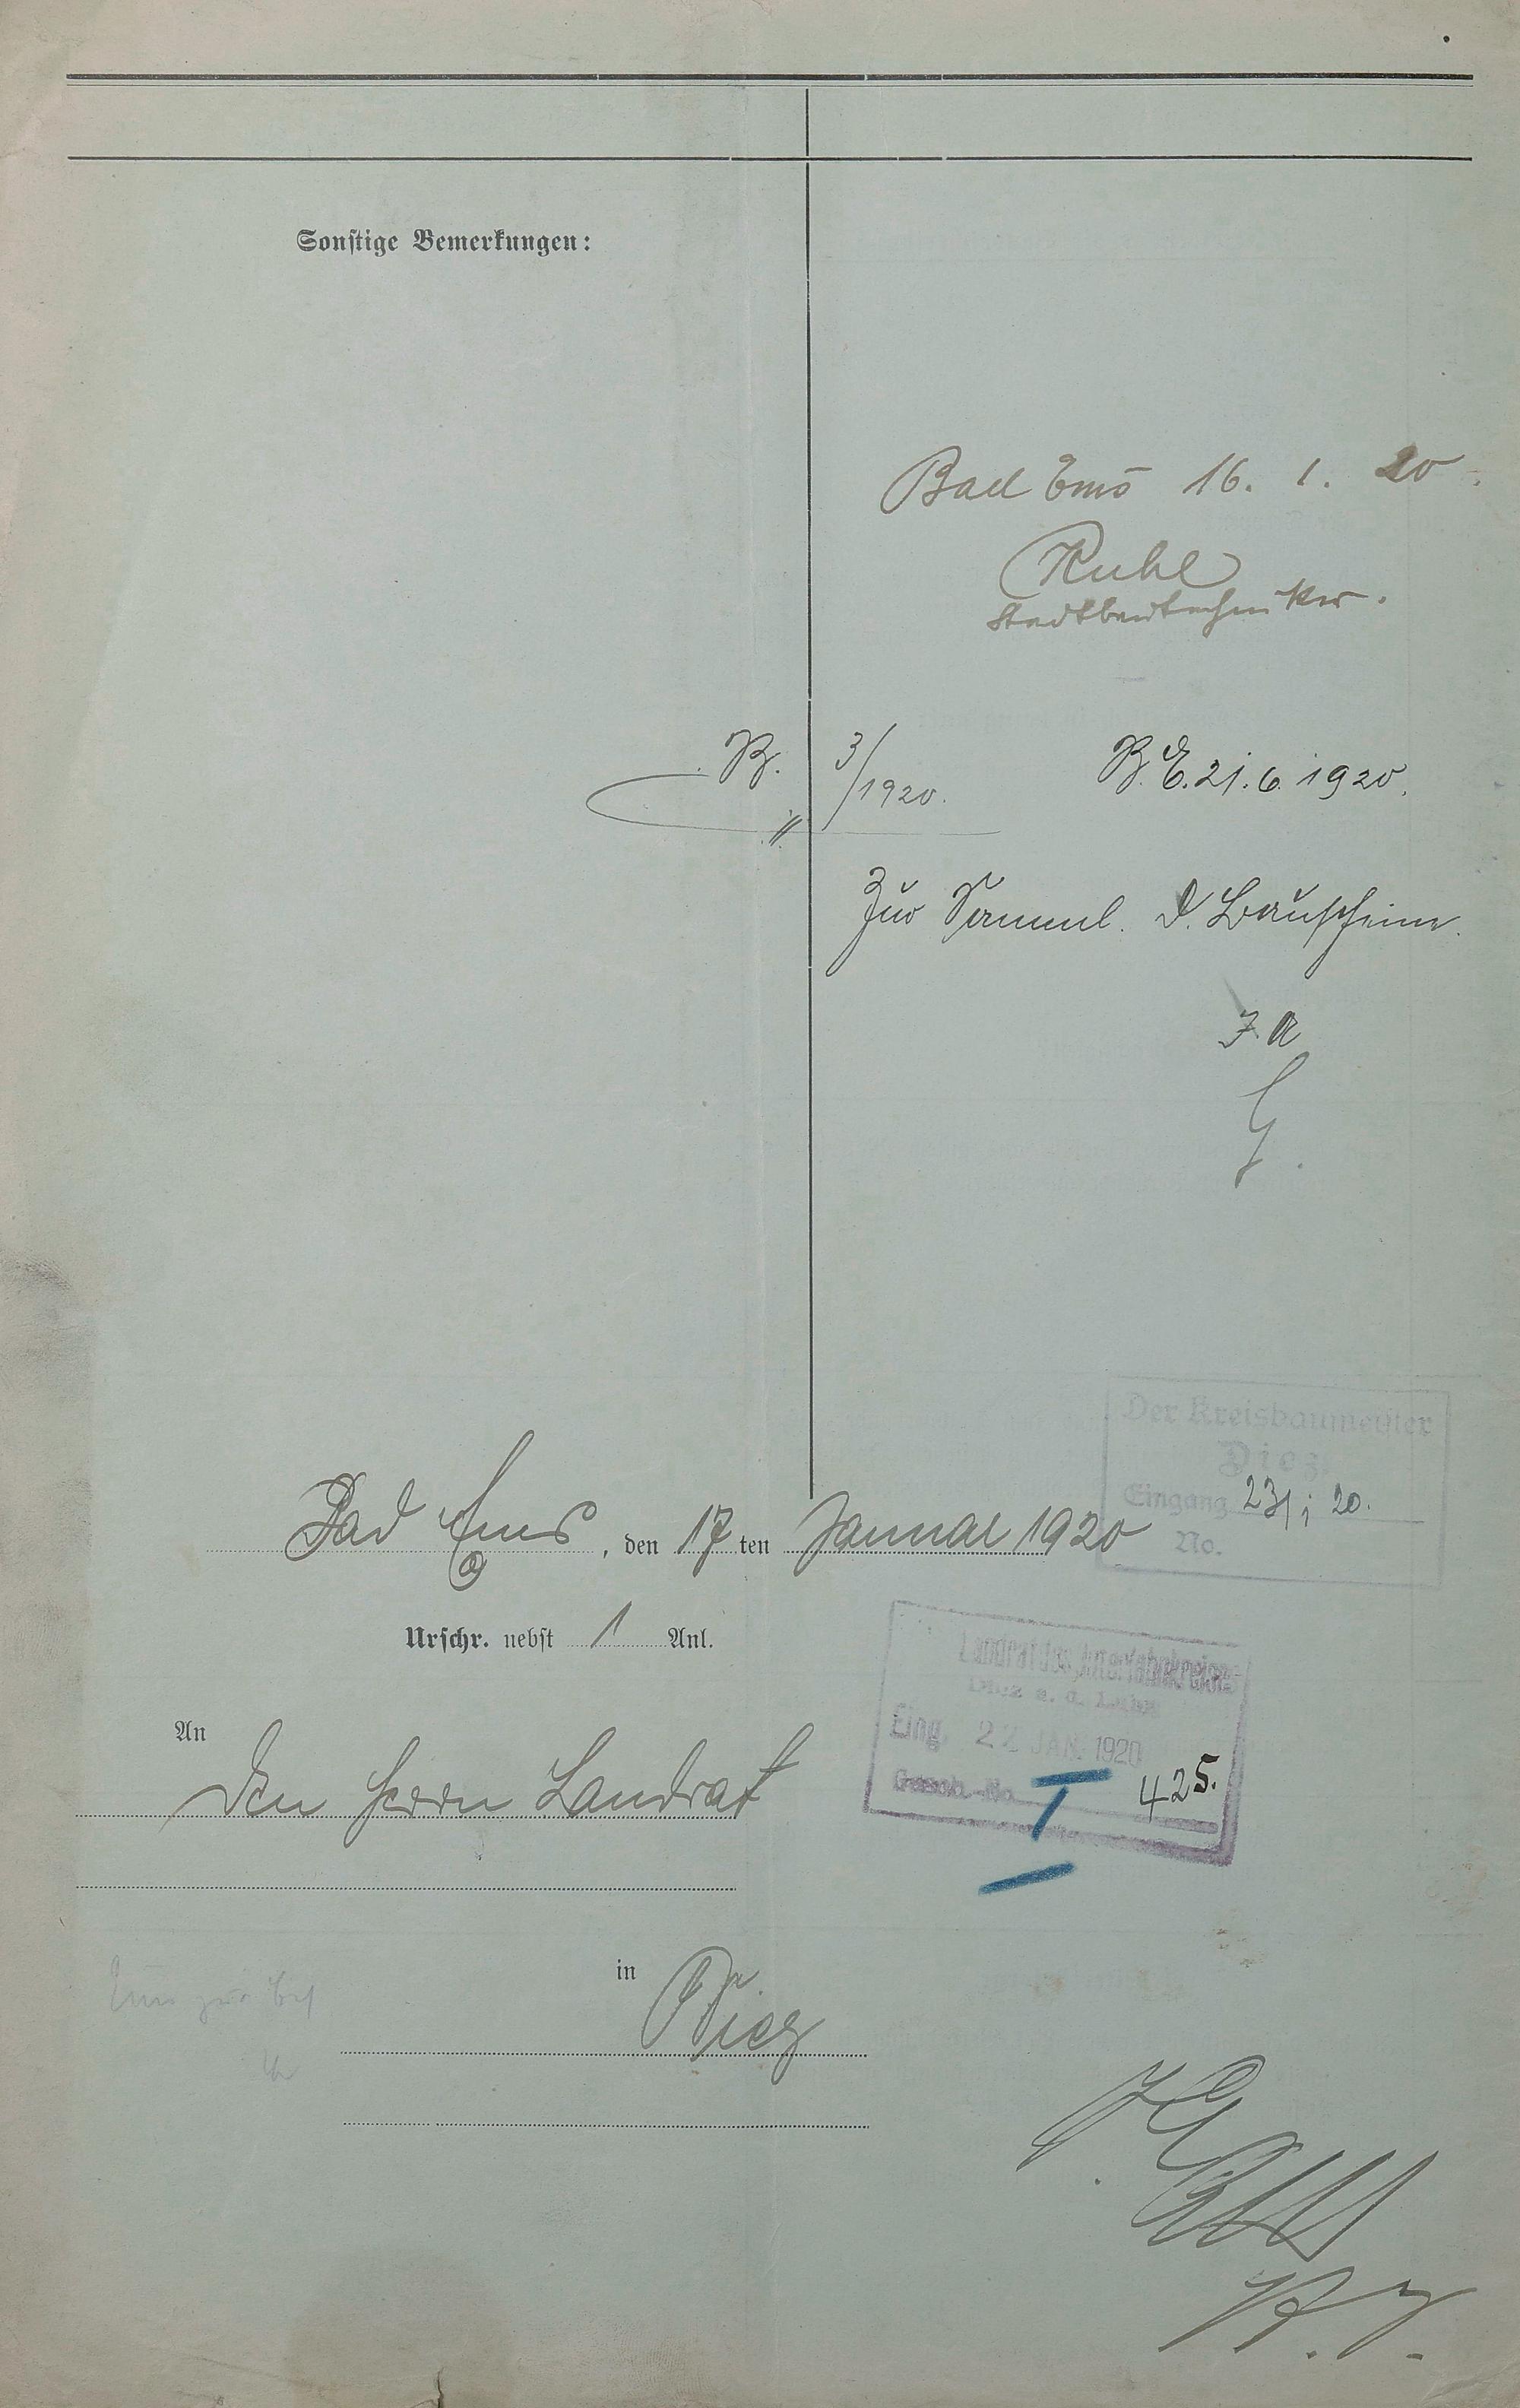 Sonstige Bemerkungen:
Bad Ems 16. 1. 20.
Ruhl
Stadtbautechniker.
B. 3/1920.
B. E. 21.6.1920.
Zur Samml. d. Bauscheine.
J. A
G.
Der Kreisbaumeister
Diez.
Eingang 23/1 20.
No.
Bad Ems, den 17ten Januar 1920
Urschr. nebst 1 Anl.
Landrat des Unterlahnkreises
Diez a. d. Lahn
Eing. 22 JAN. 1920
Gesch.-No. I 425.
An
den Herrn Landrat
in
Diez